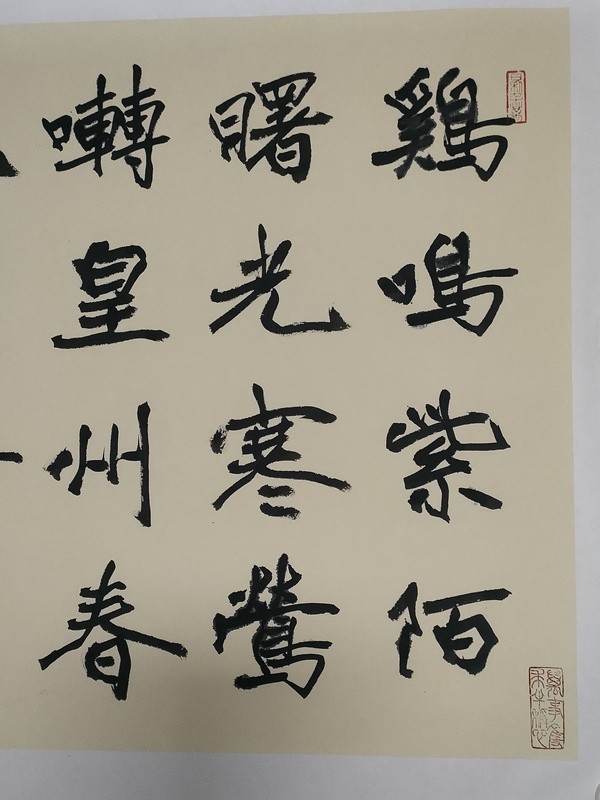 鷄鳴紫陌
曙光寒鶯
囀皇州春